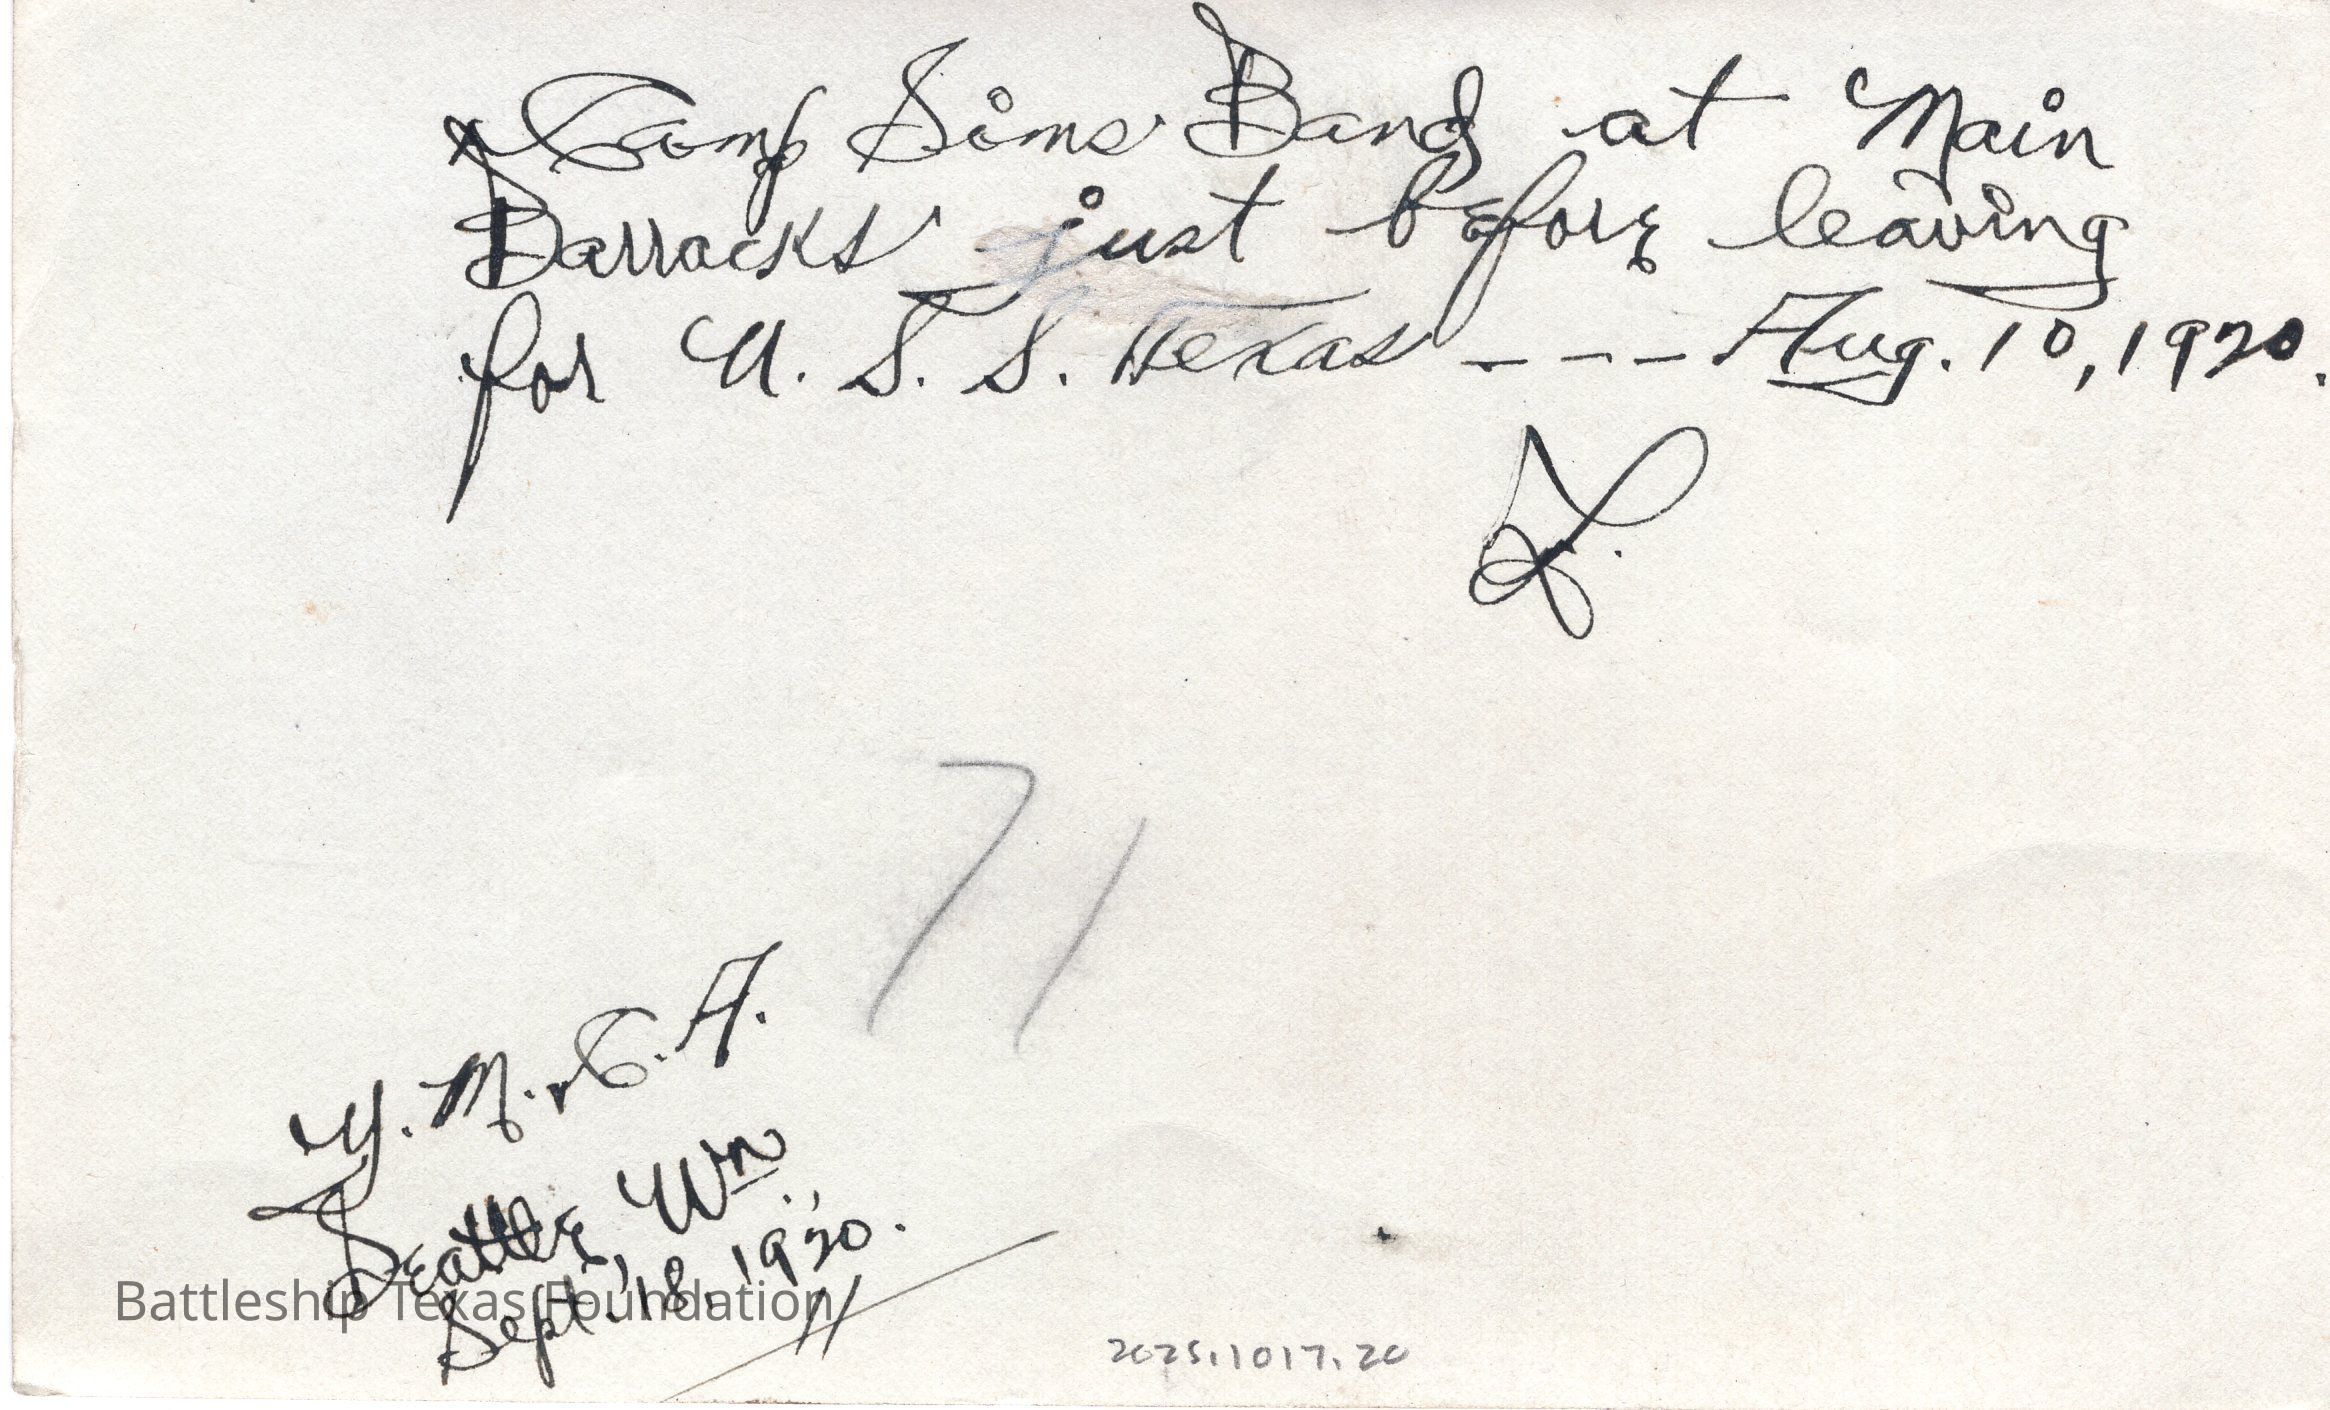 Camp Sims Band at Main
Barracks just before leaving
for U. S. S. Texas - - - Aug. 10, 1920.
L.
71
Y. M. C. A.
Seattle, Wn.,
Sept. 18, 1920.
Battleship Texas Foundation
2025.1017.20